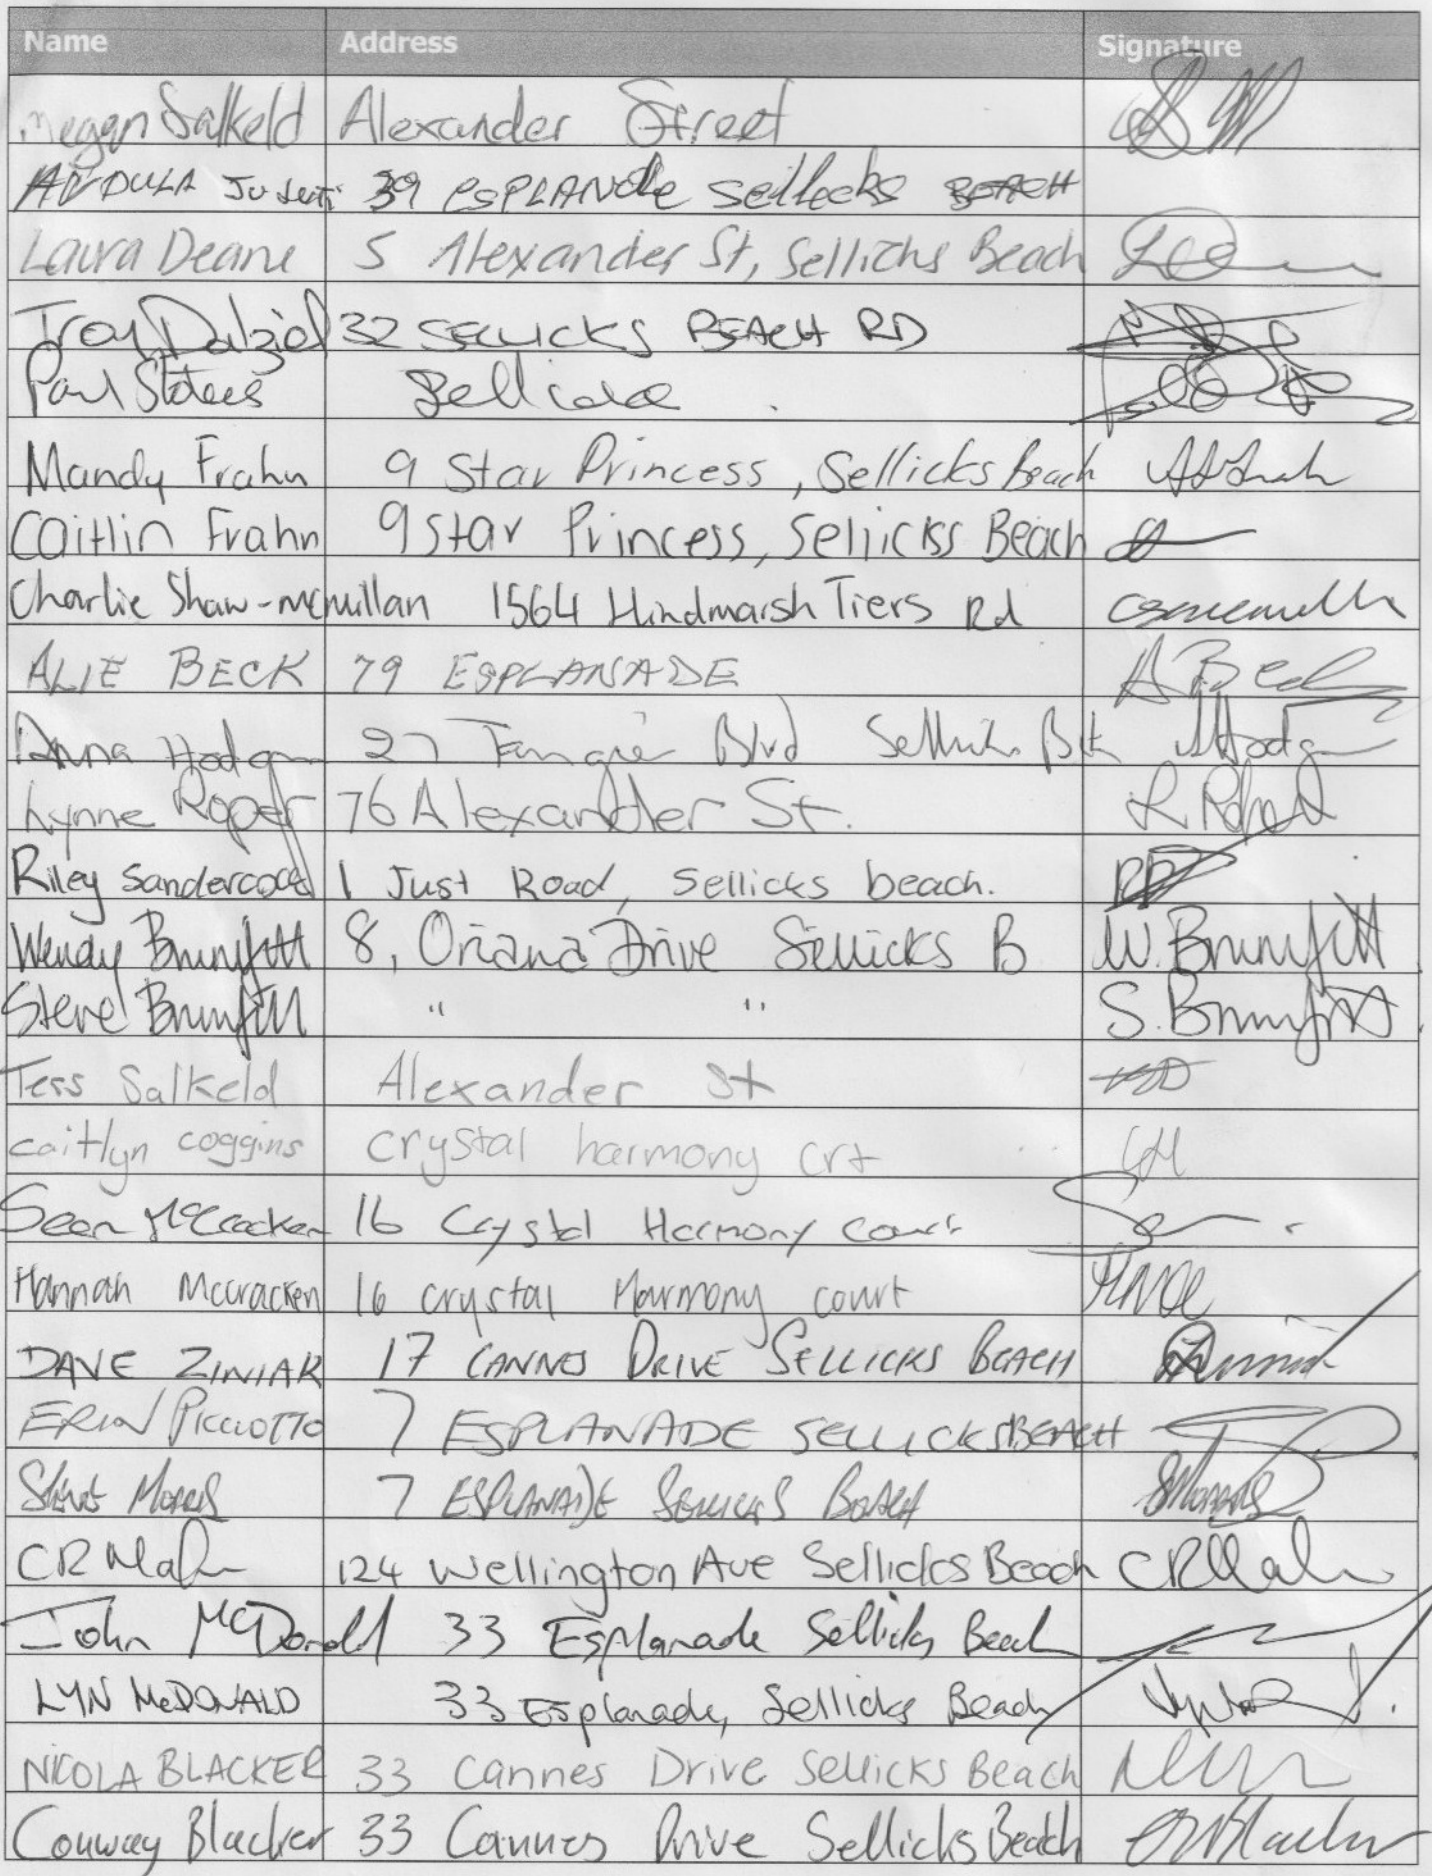 Name Address Signature
Megan Salkeld Alexander Street
39 ESPLANDe Sellecks BEACH
Laura Deane 5 Alexander St, Sellicks Beach
Troy Dalziel 32 SELLICKS BEACH RD
Paul
Mandy Frahn 9 Star Princess, Sellicks Beach
Caitlin Frahn 9 Star Princess, Sellicks Beach
Charlie Shaw-mcmillan 1564 Hindmarsh Tiers Rd
ALIE BECK 79 ESPLANADE A Beck
Anna 27 Blvd
Lynne Roper 76 Alexander St. L Roper
Riley Sandercock 1 Just Road, Sellicks beach.
Wendy Brumfitt 8, Oriana Drive Sellicks B W. Brumfitt
Steve Brumfitt " " S. Brumfitt
Tess Salkeld Alexander St
caitlyn coggins crystal harmony crt
Sean McCracken 16 Crystal Harmony Court
Hannah Mccracken 16 crystal Harmony court
DAVE ZINIAK 17 CANNES DRIVE SELLICKS BEACH
ERIN PICCIOTTO 7 ESPLANADE SELLICKS BEACH
Morris 7 ESPLANADE SELLICKS BEACH SMorris
CR 124 Wellington Ave Sellicks Beach CR
John McDonald 33 Esplanade Sellicks Beach
LYN McDONALD 33 Esplanade, Sellicks Beach
NICOLA BLACKER 33 Cannes Drive Sellicks Beach
Conway Blacker 33 Cannes Drive Sellicks Beach